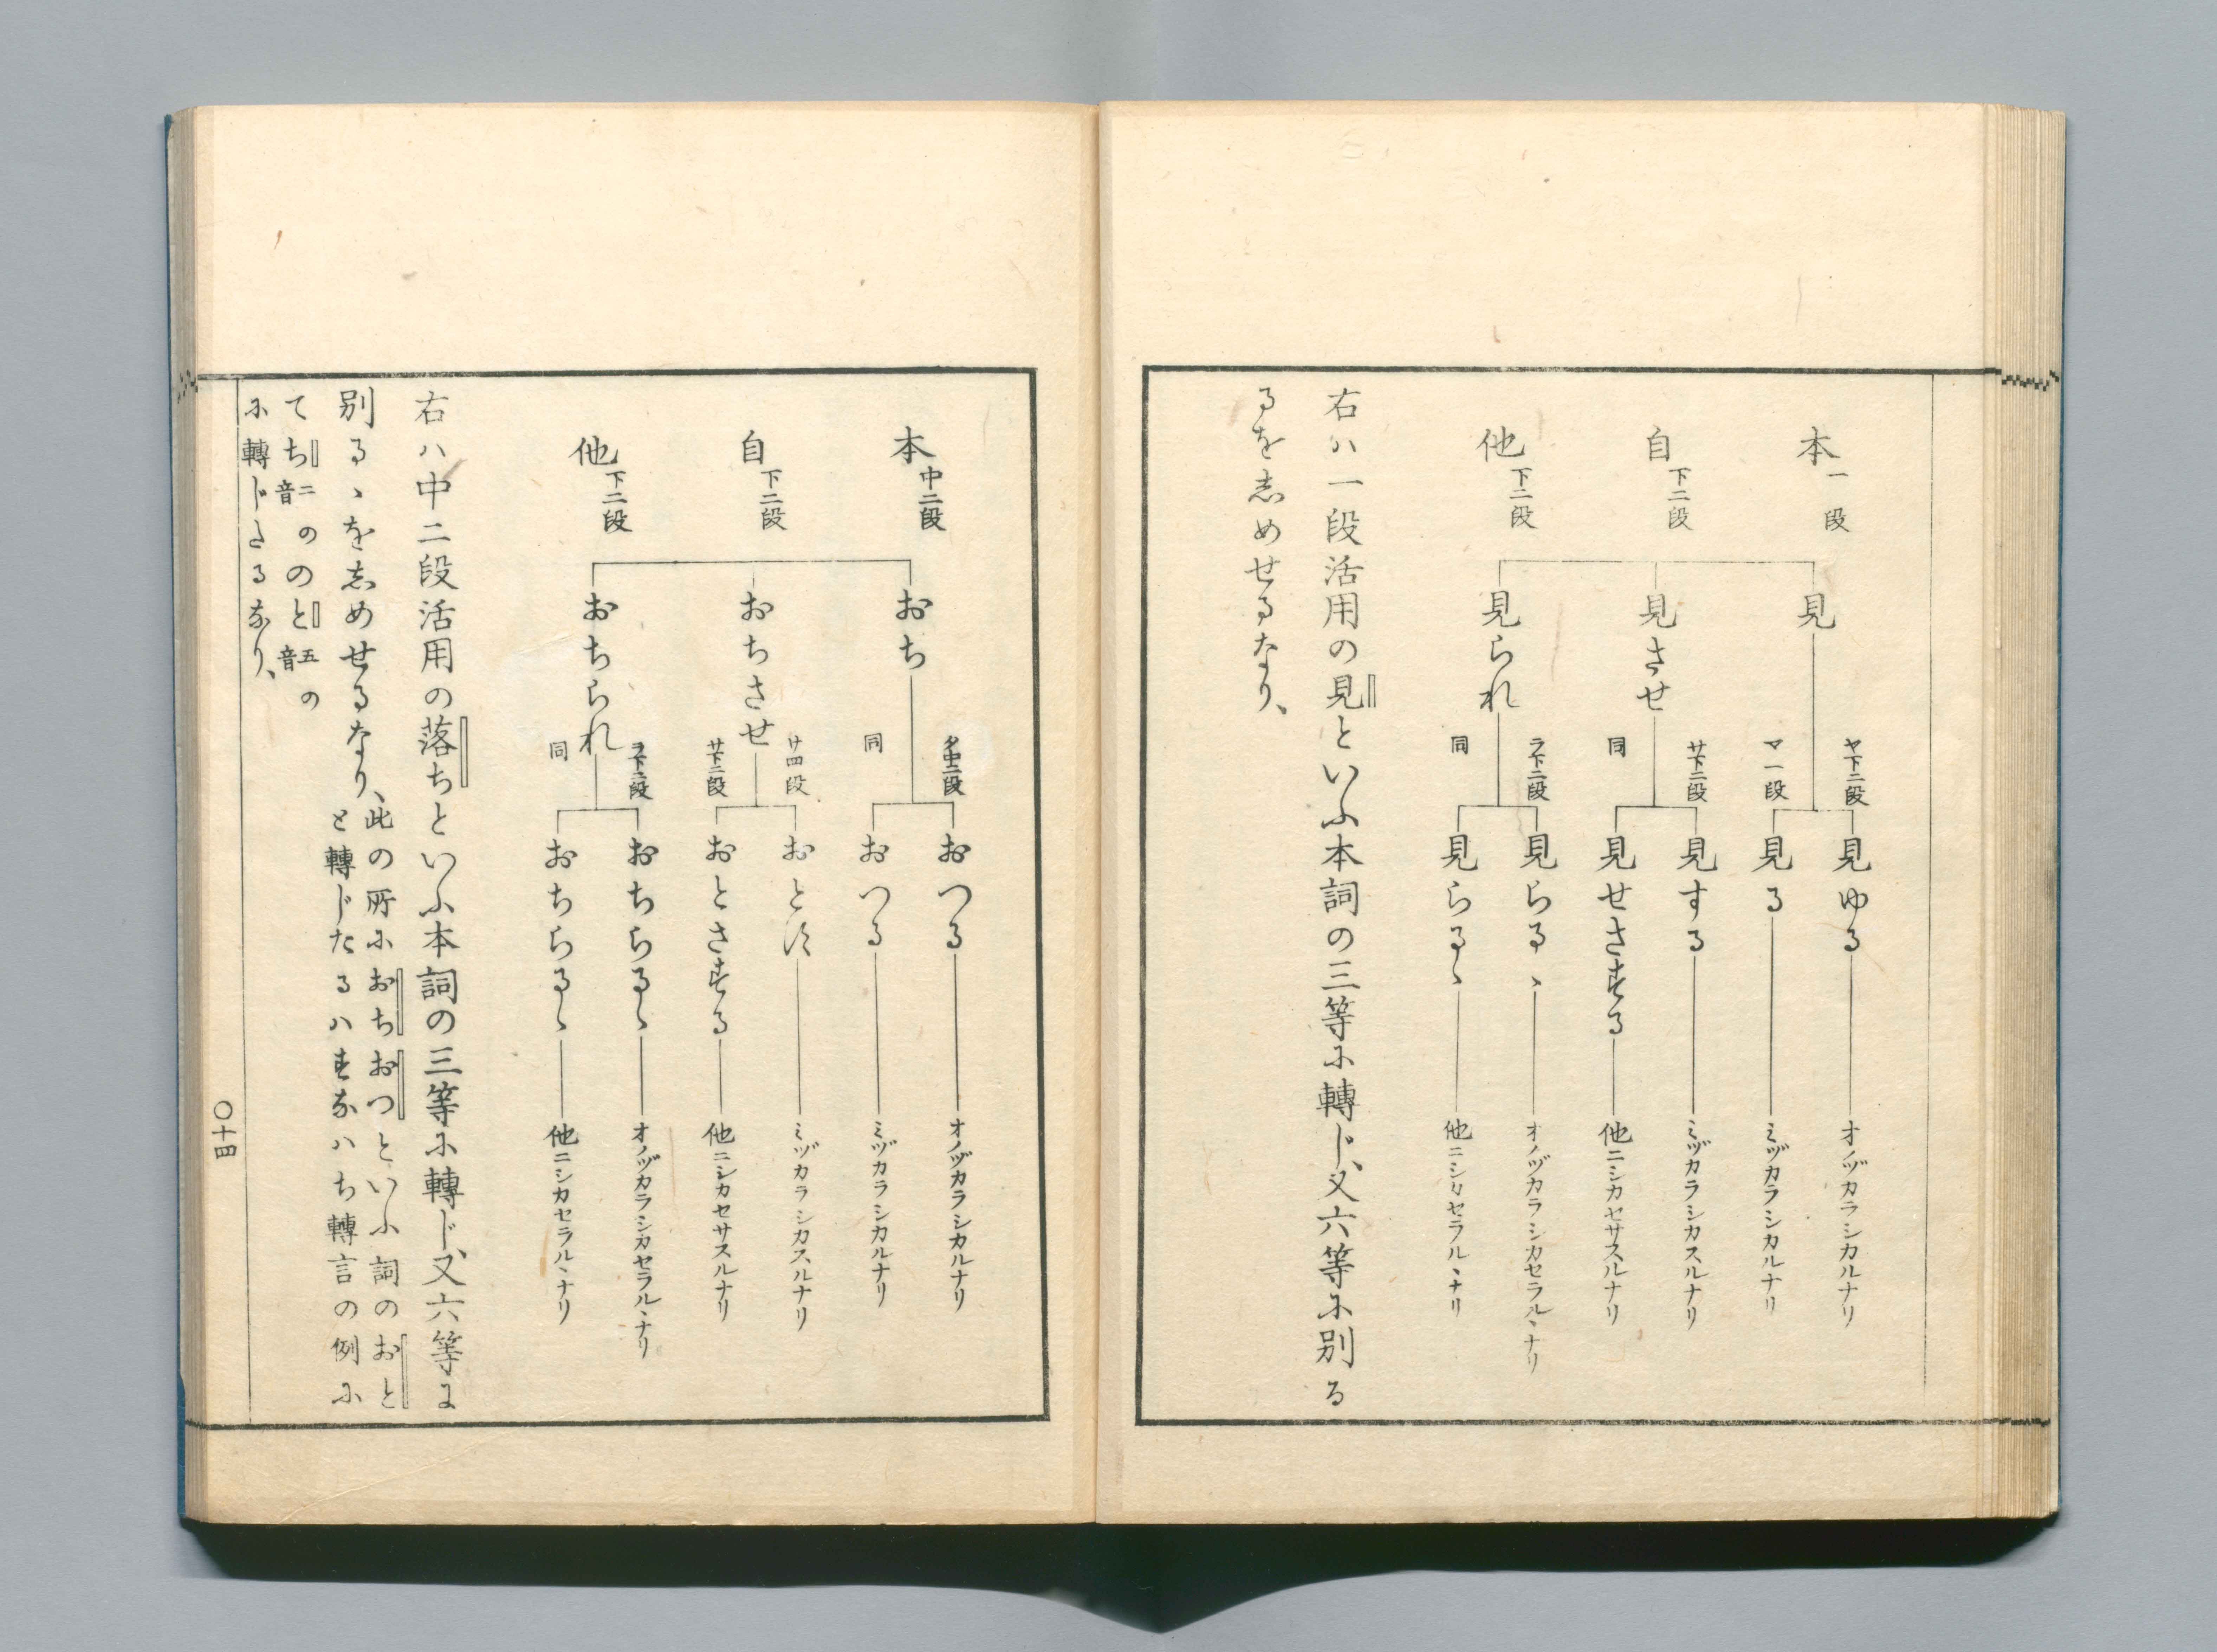 本 一段
自 下二段
他 下二段
見
見させ
見られ
ヤ下二段 見ゆる オノヅカラシカルナリ
マ一段 見る ミヅカラシカルナリ
サ下二段 見する ミヅカラシカスルナリ
同 見せさする 他ニシカセサスルナリ
ラ下二段 見らるゝ オノヅカラシカセラルヽナリ
同 見らるゝ 他ニシカセラルヽナリ
右ハ一段活用の見といふ本詞の三等に轉じ、又六等に別る
るを志めせるなり、
本 中二段
自 下二段
他 下二段
おち
おちさせ
おちられ
タ中二段 おつる オノヅカラシカルナリ
同 おつる ミヅカラシカルナリ
サ四段 おとす ミヅカラシカスルナリ
サ下二段 おとさする 他ニシカセサスルナリ
ラ下二段 おちらるゝ オノヅカラシカセラルヽナリ
同 おちらるゝ 他ニシカセラルヽナリ
右ハ中二段活用の落ちといふ本詞の三等に轉じ、又六等に
別るゝを志めせるなり、
此の所におちおつといふ詞のおと
と轉じたるハすなハち轉言の例に
てち二音ののと五音の
に轉じたるなり、
〇十四